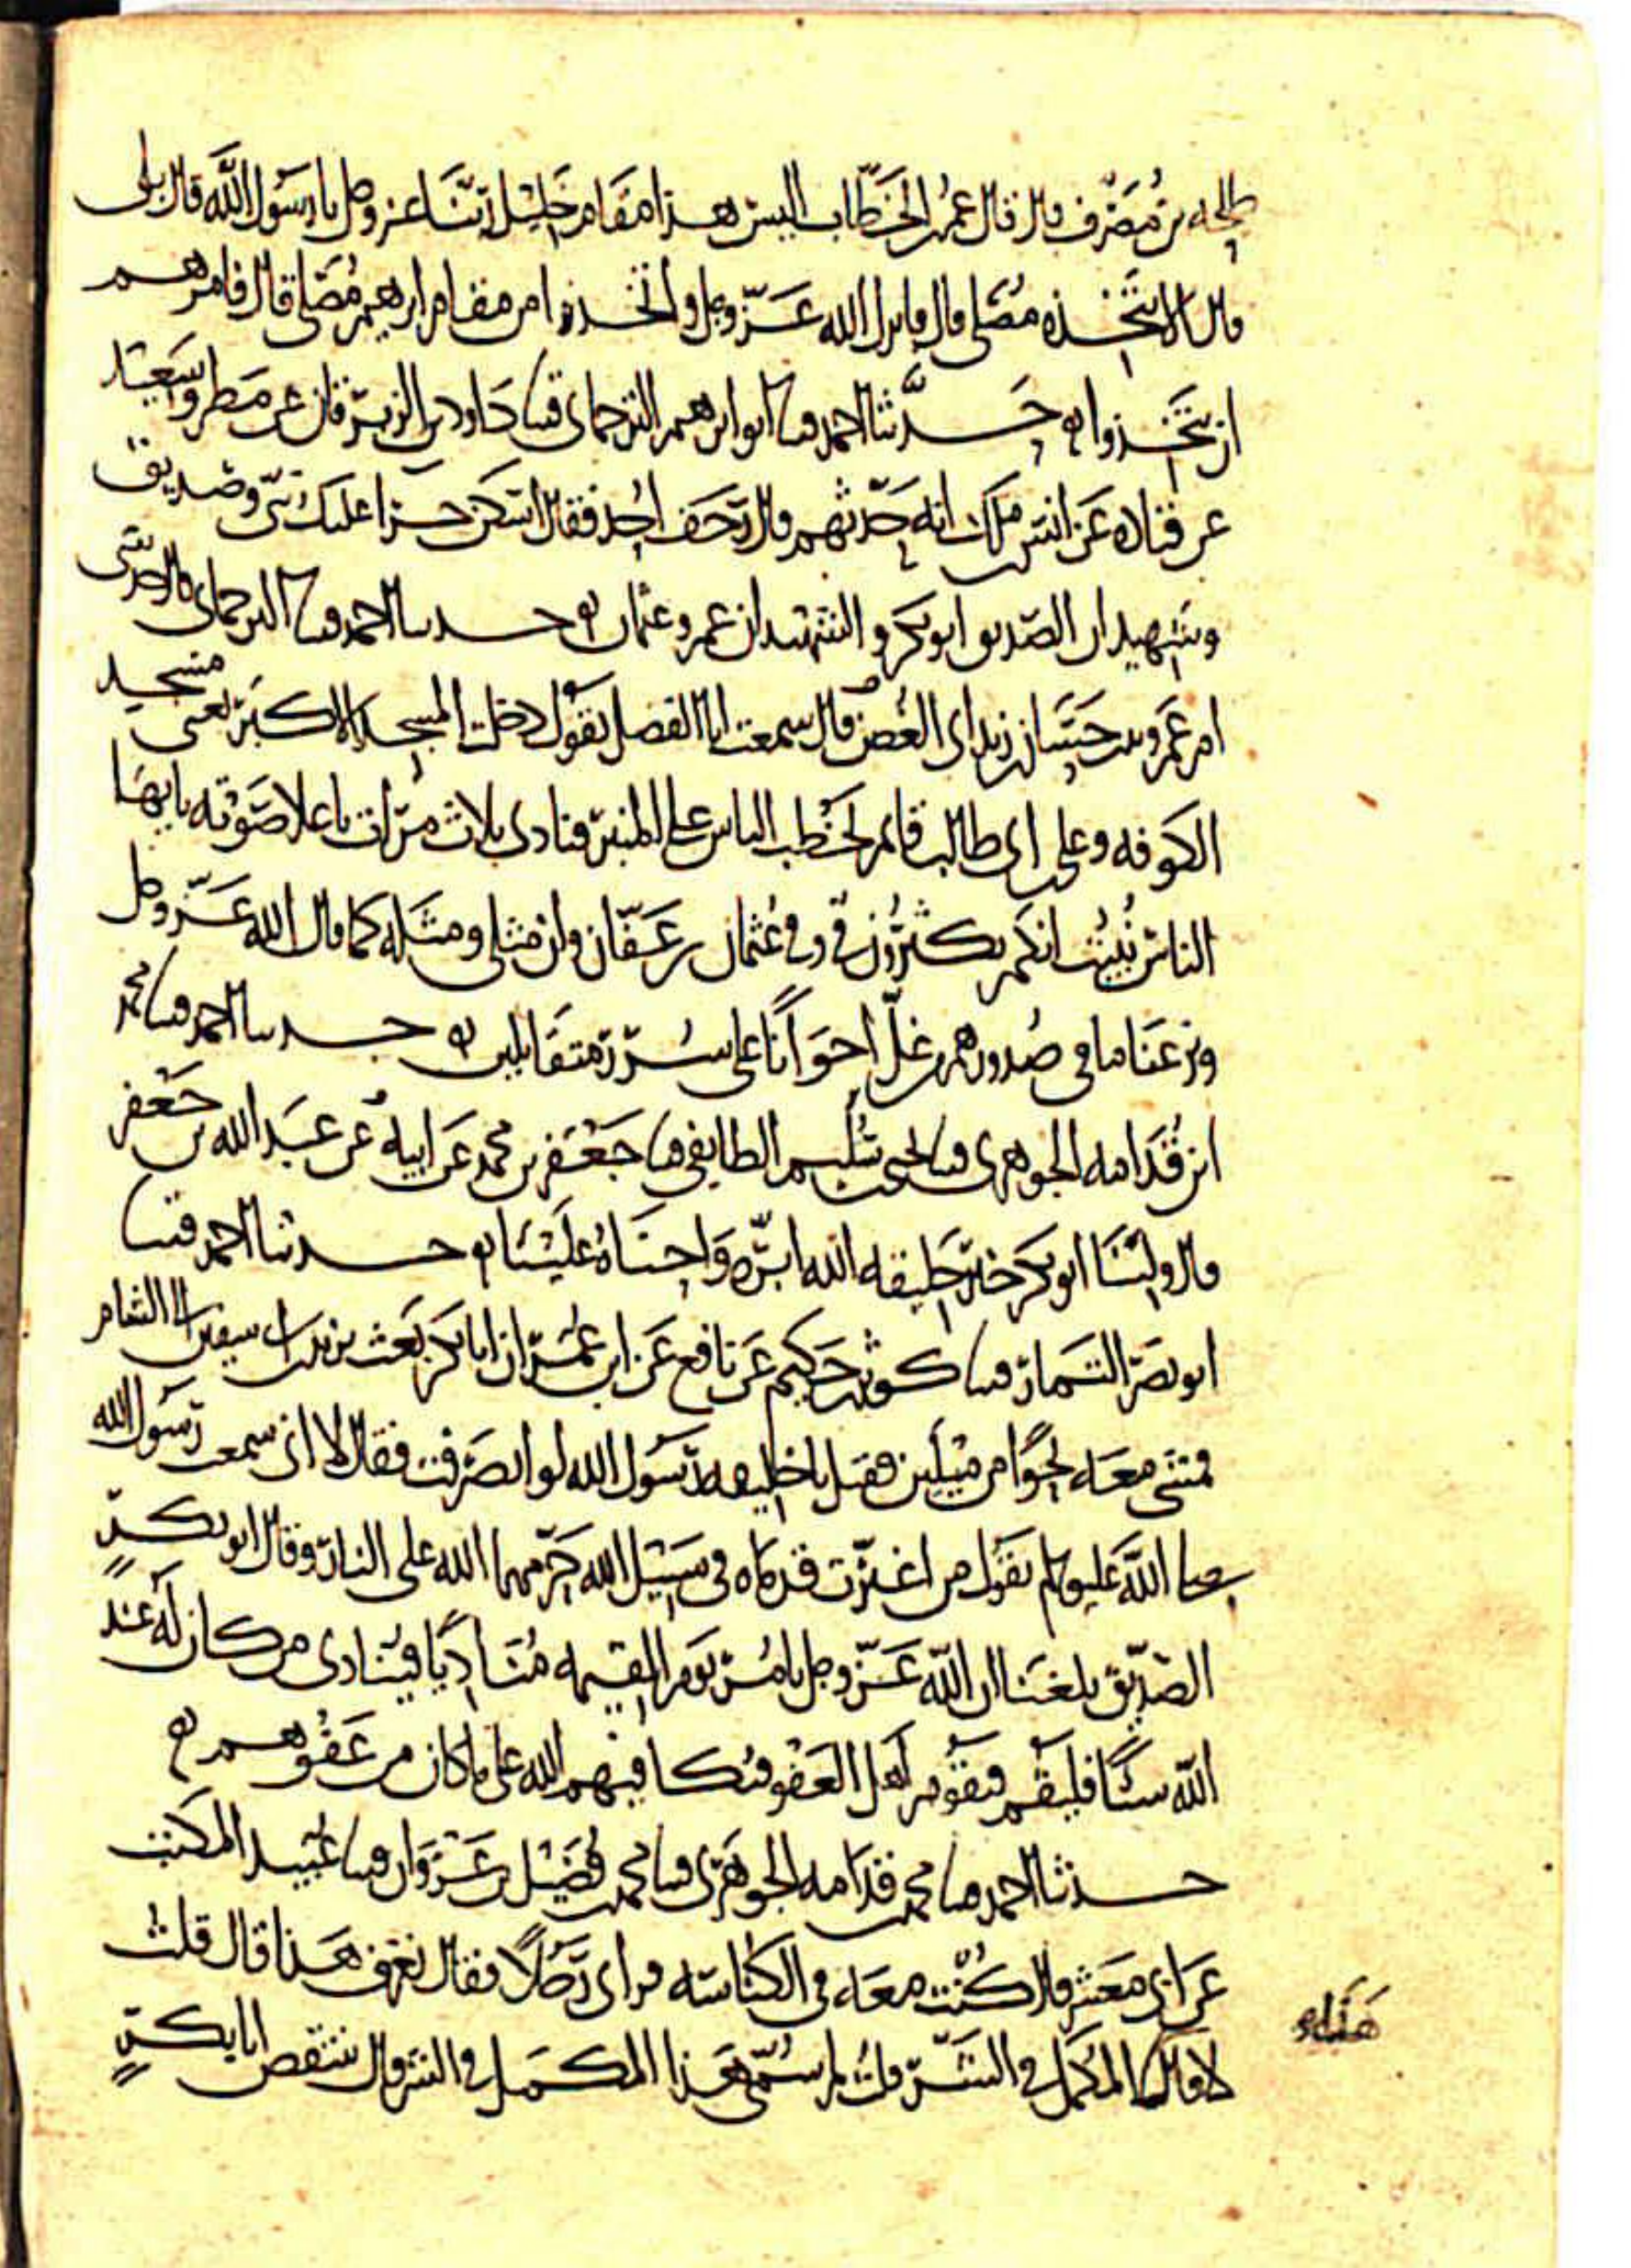 طلحه بن مصرف قال قال عمر بن الخطاب اليس هذا مقام خليل ربنا عز وجل يا رسول الله قال بلى
قال الا نتخذه مصلى قال فانزل الله عز وجل واتخذوا من مقام ابرهيم مصلى قال فامرهم
ان يتخذوا به حدثنا احمد قثنا ابو ابرهيم الترجماني قثنا داود بن الزبرقان عن مطر وسعيد
عن قتاده عن انس بن ملك انه حدثهم قال رجف احد فقال اسكن حرا عليك نبي وصديق
وشهيدان الصديق ابو بكر والشهيدان عمر وعثمان حدثنا احمد قثنا الترجماني قال حدثني
ام عمرو بنت حسان بن زيد ابي الغصن قال سمعت ابا الفضل يقول دخلت المسجد الاكبر يعني مسجد
الكوفه وعلي بن ابي طالب قائم يخطب الناس على المنبر فنادى بلاث مرات باعلا صوته يايها
الناس نبيت انكم تكثرون في وفي عثمان بن عفان وان مثلي ومثله كما قال الله عز وجل
ونزعنا ما في صدورهم من غل اخوانا على سرر متقابلين حدثنا احمد قثنا محمد
ابن قدامه الجوهري قثنا يحيى بن سليم الطايفي قثنا جعفر بن محمد عن ابيه عن عبد الله بن جعفر
قال ولينا ابو بكر خير خليفه الله ابره واحناه علينا حدثنا احمد قثنا
ابو نصر التمار قثنا كوثر بن حكيم عن نافع عن ابن عمر ان ابا بكر بعث يزيد بن ابي سفين الى الشام
فمشى معه نحوا من ميلين فقيل يا خليفه رسول الله لو انصرفت فقال لا اني سمعت رسول الله
صلى الله عليه وسلم يقول من اغبرت قدماه في سبيل الله حرمهما الله على النار وقال ابو بكر
الصديق بلغنا ان الله عز وجل يامر يوم القيمه مناديا فينادى من كان له عند
الله شيئا فليقم فيقوم اهل العفو فيكافيهم الله على ما كان من عفوهم
حدثنا احمد قثنا محمد بن قدامه الجوهري قثنا محمد بن فضيل بن غزوان قثنا عبيد المكتب
عن ابي معشر قال كنت معه في الكناسه فراى رجلا فقال تعرف هذا قال قلت
لا قال هذا المكمل في الشر قلت لم سمي هذا المكمل في الشر قال ينتقص ابا بكر